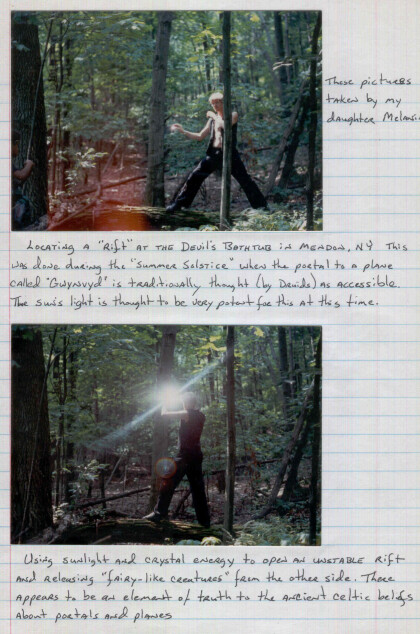 These pictures
taken by my
daughter Melanie
Locating a "Rift" at the Devil's Bathtub in Mendon, NY This
was done during the "Summer Solstice" when the portal to a plane
called "Gwynvyd" is traditionally thought (by Druids) as accessible.
The sun's light is thought to be very potent for this at this time.
Using sunlight and crystal energy to open an unstable rift
and releasing "fairy-like creatures" from the other side. There
appears to be an element of truth to the ancient Celtic beliefs
about portals and planes